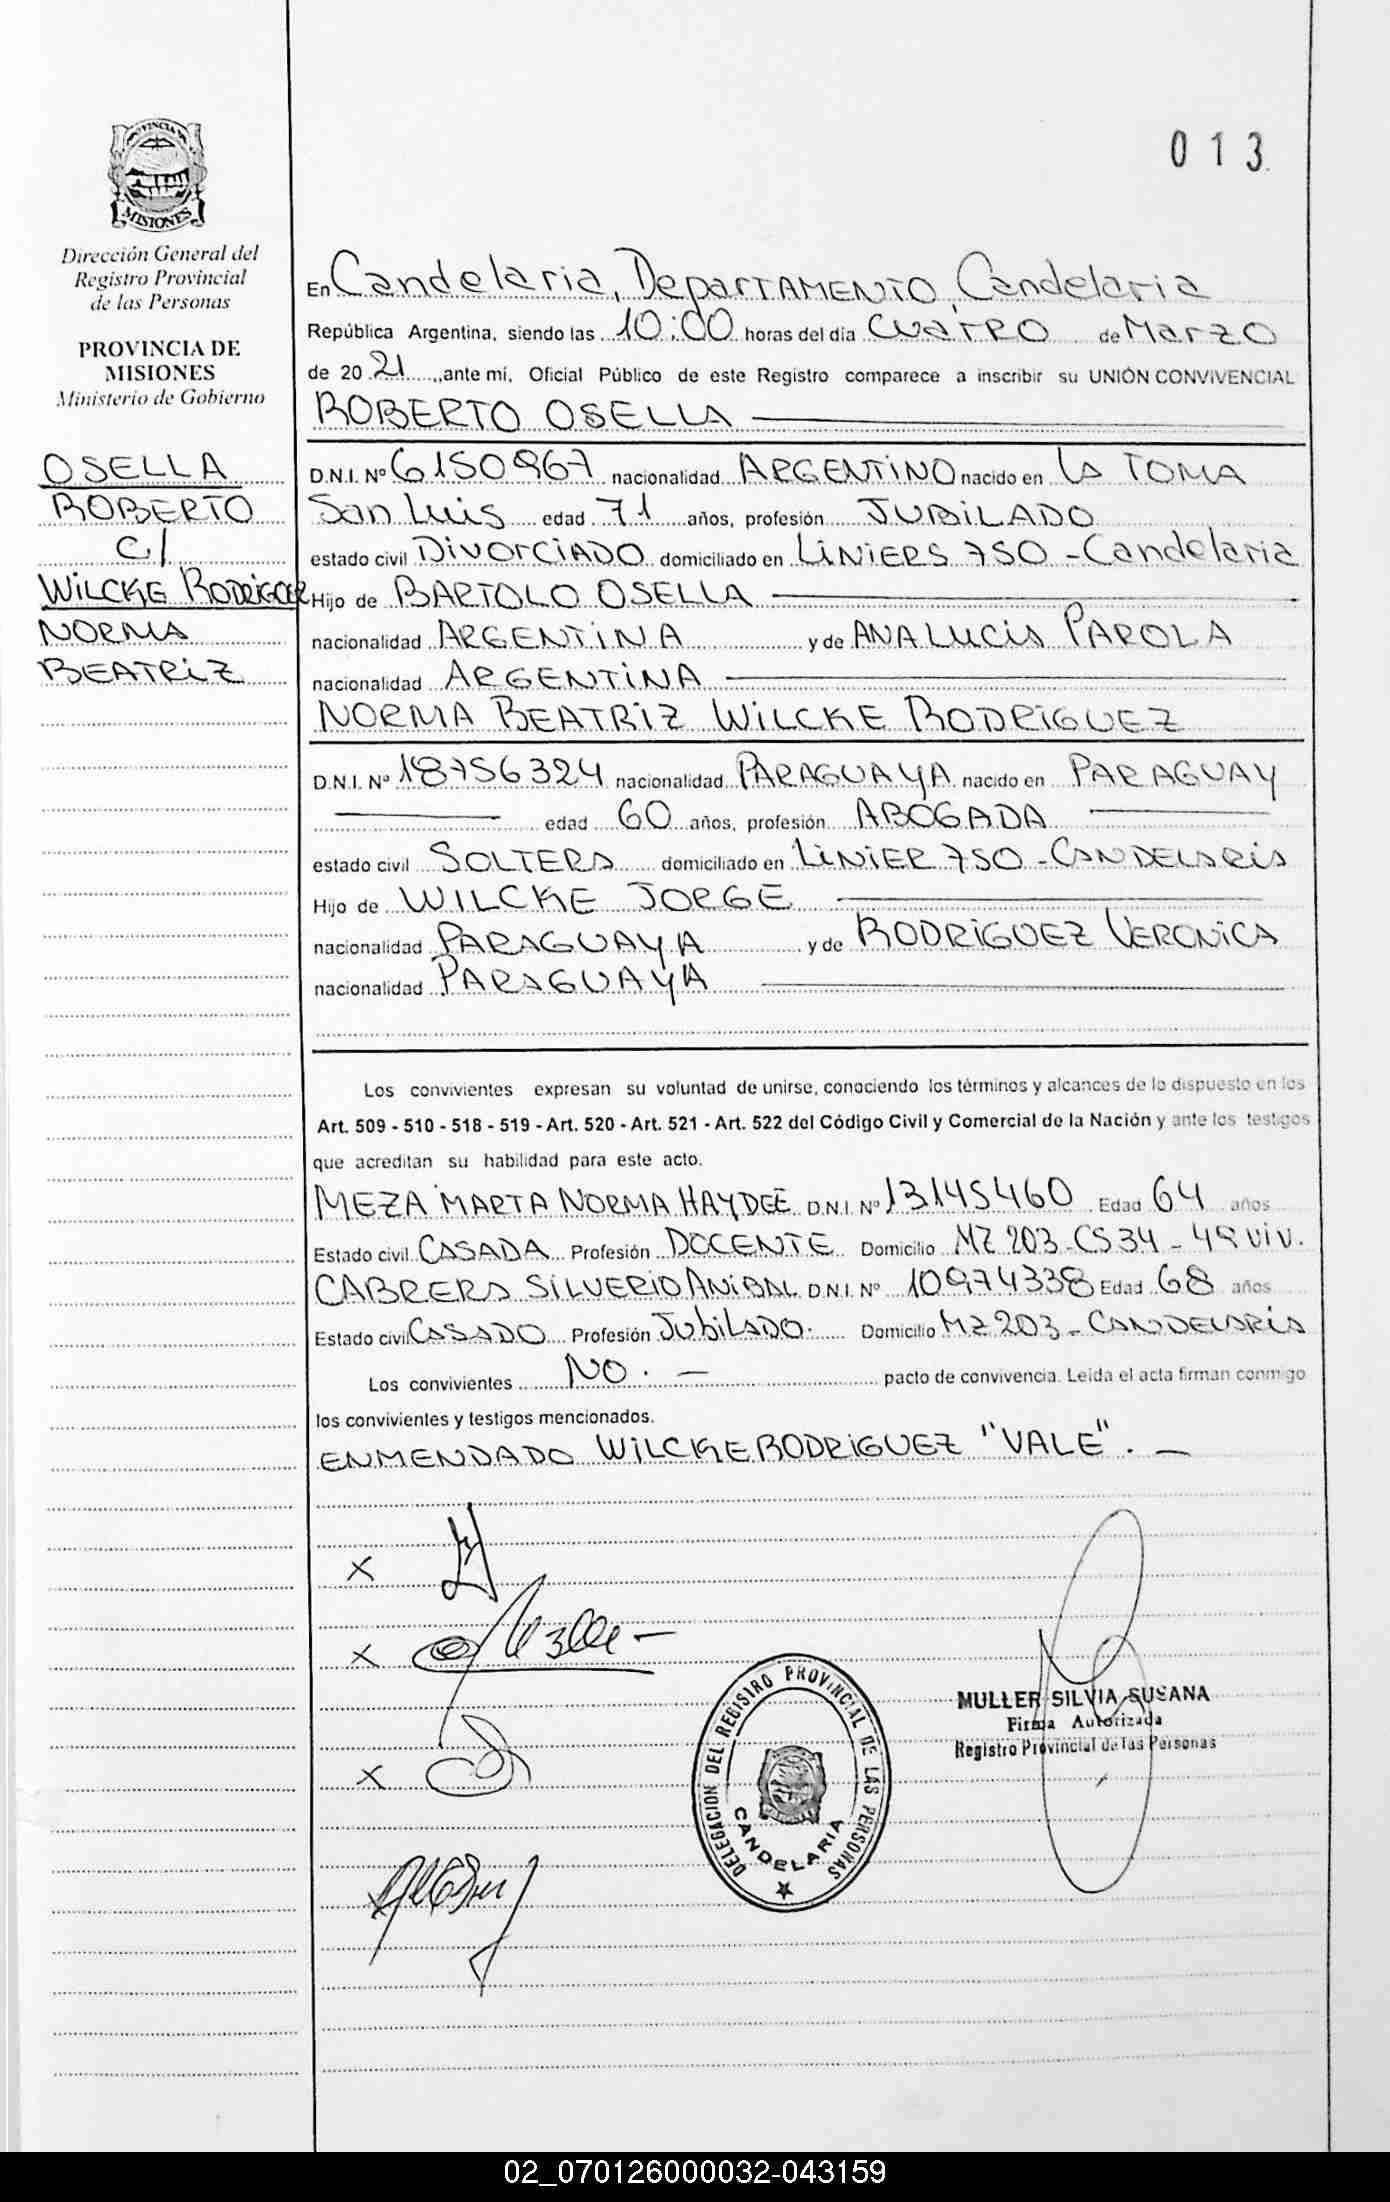 013
PROVINCIA DE
MISIONES
Dirección General del
Registro Provincial
de las Personas
PROVINCIA DE
MISIONES
Ministerio de Gobierno
OSELLA
ROBERTO
C/
WILCKE RODRIGUEZ
NORMA
BEATRIZ
En Candelaria, DeparTAMENTO, Candelaria
República Argentina, siendo las 10:00 horas del día CUATRO de Marzo
de 2021, ante mí, Oficial Público de este Registro comparece a inscribir su UNIÓN CONVIVENCIAL
ROBERTO OSELLA
D.N.I. Nº 6150967 nacionalidad ARGENTINO nacido en LA TOMA
San Luis edad 71 años, profesión JUBILADO
estado civil DIVORCIADO domiciliado en LINIERS 750 - Candelaria
Hijo de BARTOLO OSELLA
nacionalidad ARGENTINA y de ANA LUCIA PAROLA
nacionalidad ARGENTINA
NORMA BEATRIZ WILCKE RODRIGUEZ
D.N.I. Nº 18756324 nacionalidad PARAGUAYA nacido en PARAGUAY
edad 60 años, profesión ABOGADA
estado civil SOLTERA domiciliado en LINIER 750 - CANDELARIA
Hijo de WILCKE JORGE
nacionalidad PARAGUAYA y de RODRIGUEZ VERONICA
nacionalidad PARAGUAYA
Los convivientes expresan su voluntad de unirse, conociendo los términos y alcances de lo dispuesto en los
Art. 509 - 510 - 518 - 519 - Art. 520 - Art. 521 - Art. 522 del Código Civil y Comercial de la Nación y ante los testigos
que acreditan su habilidad para este acto.
MEZA MARTA NORMA HAYDEÉ D.N.I. Nº 13145460 Edad 64 años
Estado civil CASADA Profesión DOCENTE Domicilio MZ 203 - CS 34 - 48 VIV.
CABRERA SILVERIO ANIBAL D.N.I. Nº 10974338 Edad 68 años
Estado civil CASADO Profesión JUBILADO. Domicilio MZ 203 - CANDELARIA
Los convivientes NO. - pacto de convivencia. Leída el acta firman conmigo
los convivientes y testigos mencionados.
ENMENDADO WILCKE RODRIGUEZ "VALE". -
X
X
X
DELEGACION DEL REGISTRO PROVINCIAL DE LAS PERSONAS
CANDELARIA
MULLER SILVIA SUSANA
Firma Autorizada
Registro Provincial de las Personas
02_070126000032-043159